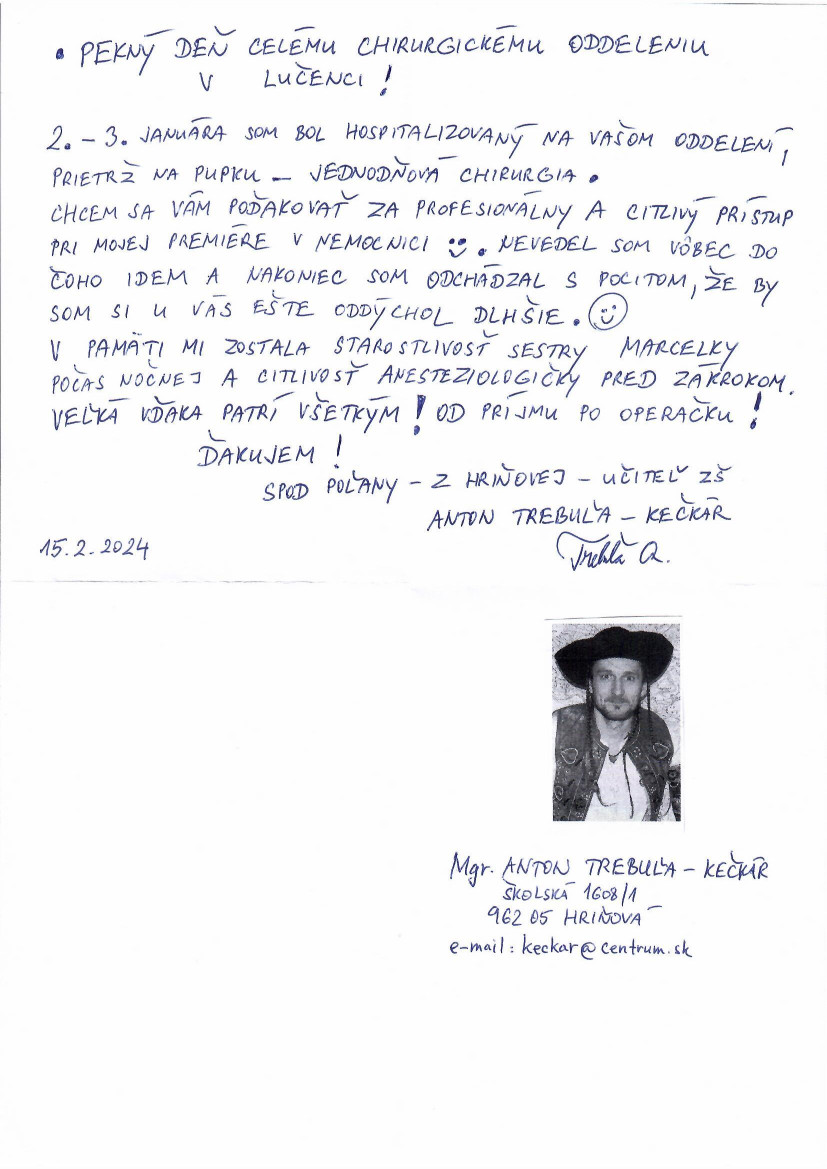 • PEKNÝ DEŇ CELÉMU CHIRURGICKÉMU ODDELENIU
V LUČENCI!
2. – 3. JANUÁRA SOM BOL HOSPITALIZOVANÝ NA VAŠOM ODDELENÍ,
PRIETRŽ NA PUPKU – JEDNODŇOVÁ CHIRURGIA.
CHCEM SA VÁM POĎAKOVAŤ ZA PROFESIONÁLNY A CITLIVÝ PRÍSTUP
PRI MOJEJ PREMIÉRE V NEMOCNICI :). NEVEDEL SOM VÔBEC DO
ČOHO IDEM A NAKONIEC SOM ODCHÁDZAL S POCITOM, ŽE BY
SOM SI U VÁS EŠTE ODDÝCHOL DLHŠIE. ☺
V PAMÄTI MI ZOSTALA STAROSTLIVOSŤ SESTRY MARCELKY
POČAS NOČNEJ A CITLIVOSŤ ANESTEZIOLOGIČKY PRED ZÁKROKOM.
VEĽKÁ VĎAKA PATRÍ VŠETKÝM! OD PRÍJMU PO OPERAČKU!
ĎAKUJEM!
SPOD POĽANY – Z HRIŇOVEJ – UČITEĽ ZŠ
ANTON TREBUĽA – KEČKÁR
15.2.2024
Mgr. ANTON TREBUĽA – KEČKÁR
ŠKOLSKÁ 1608/1
962 05 HRIŇOVÁ
e-mail: keckar@centrum.sk